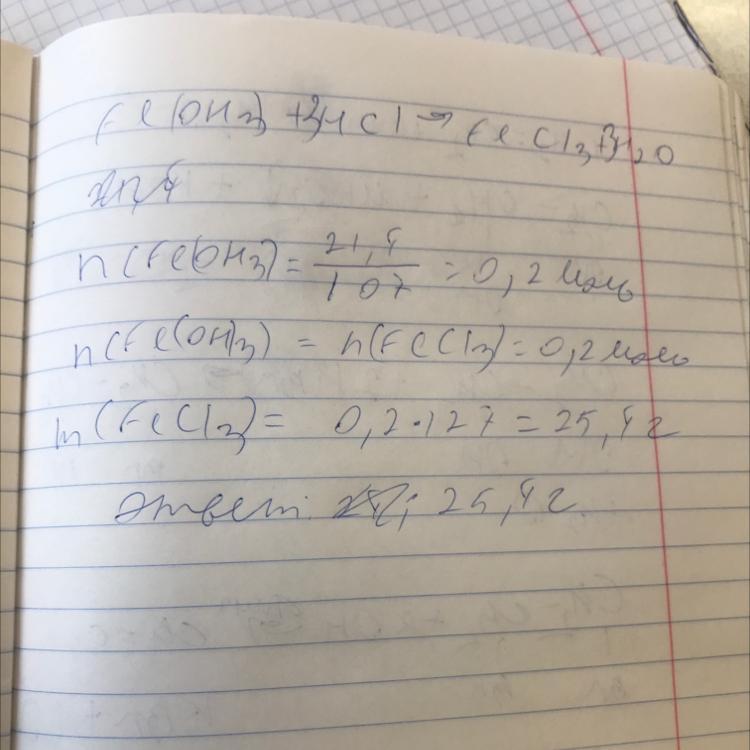 Fe(OH)3 + 3HCl → FeCl3 + 3H2O
n(Fe(OH)3) = 21,4 / 107 = 0,2 моль
n(Fe(OH)3) = n(FeCl3) = 0,2 моль
m(FeCl3) = 0,2 · 127 = 25,4 г
Ответ: 25,4 г